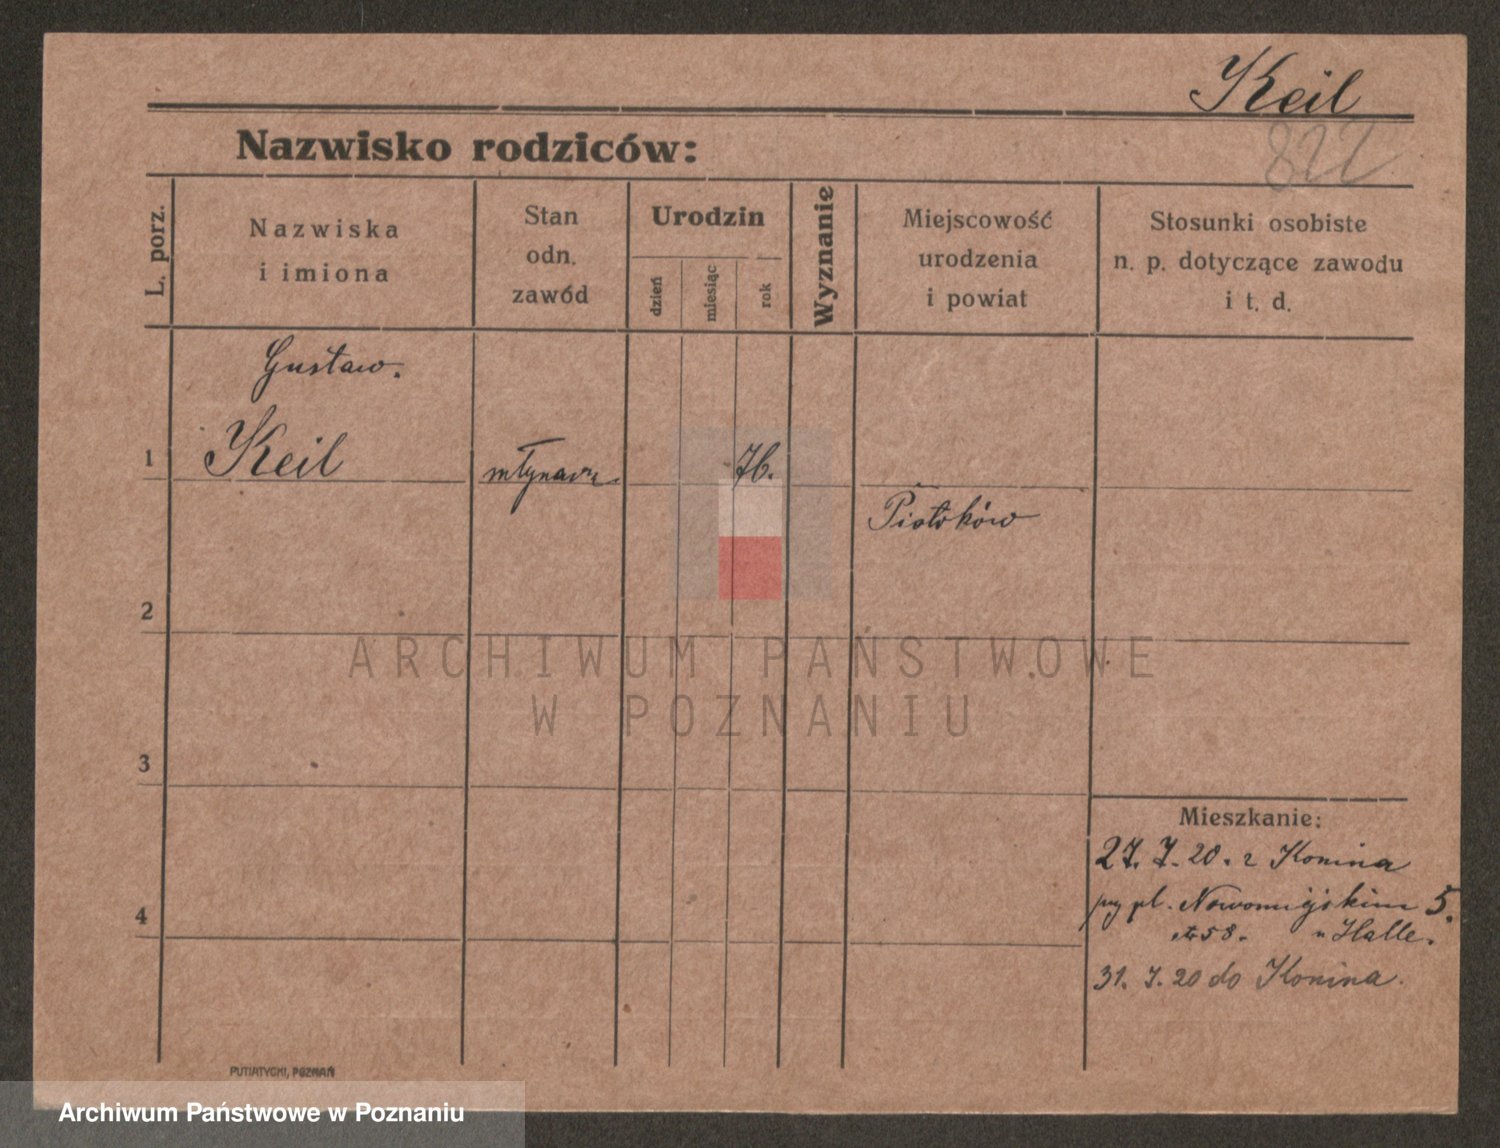 Keil
822
Nazwisko rodziców:
L. porz.
Nazwiska
i imiona
Stan
odn.
zawód
Urodzin
dzień
miesiąc
rok
Wyznanie
Miejscowość
urodzenia
i powiat
Stosunki osobiste
n. p. dotyczące zawodu
i t. d.
Gustaw.
1
Keil
młynarz
76.
Piotrków
2
3
4
Mieszkanie:
27. 7. 20. z Konina
pl. Nowomiejskim 5.
58. u Halle.
31. 7. 20 do Konina.
PUTIATYCKI, POZNAŃ
ARCHIWUM PAŃSTWOWE
W POZNANIU
Archiwum Państwowe w Poznaniu